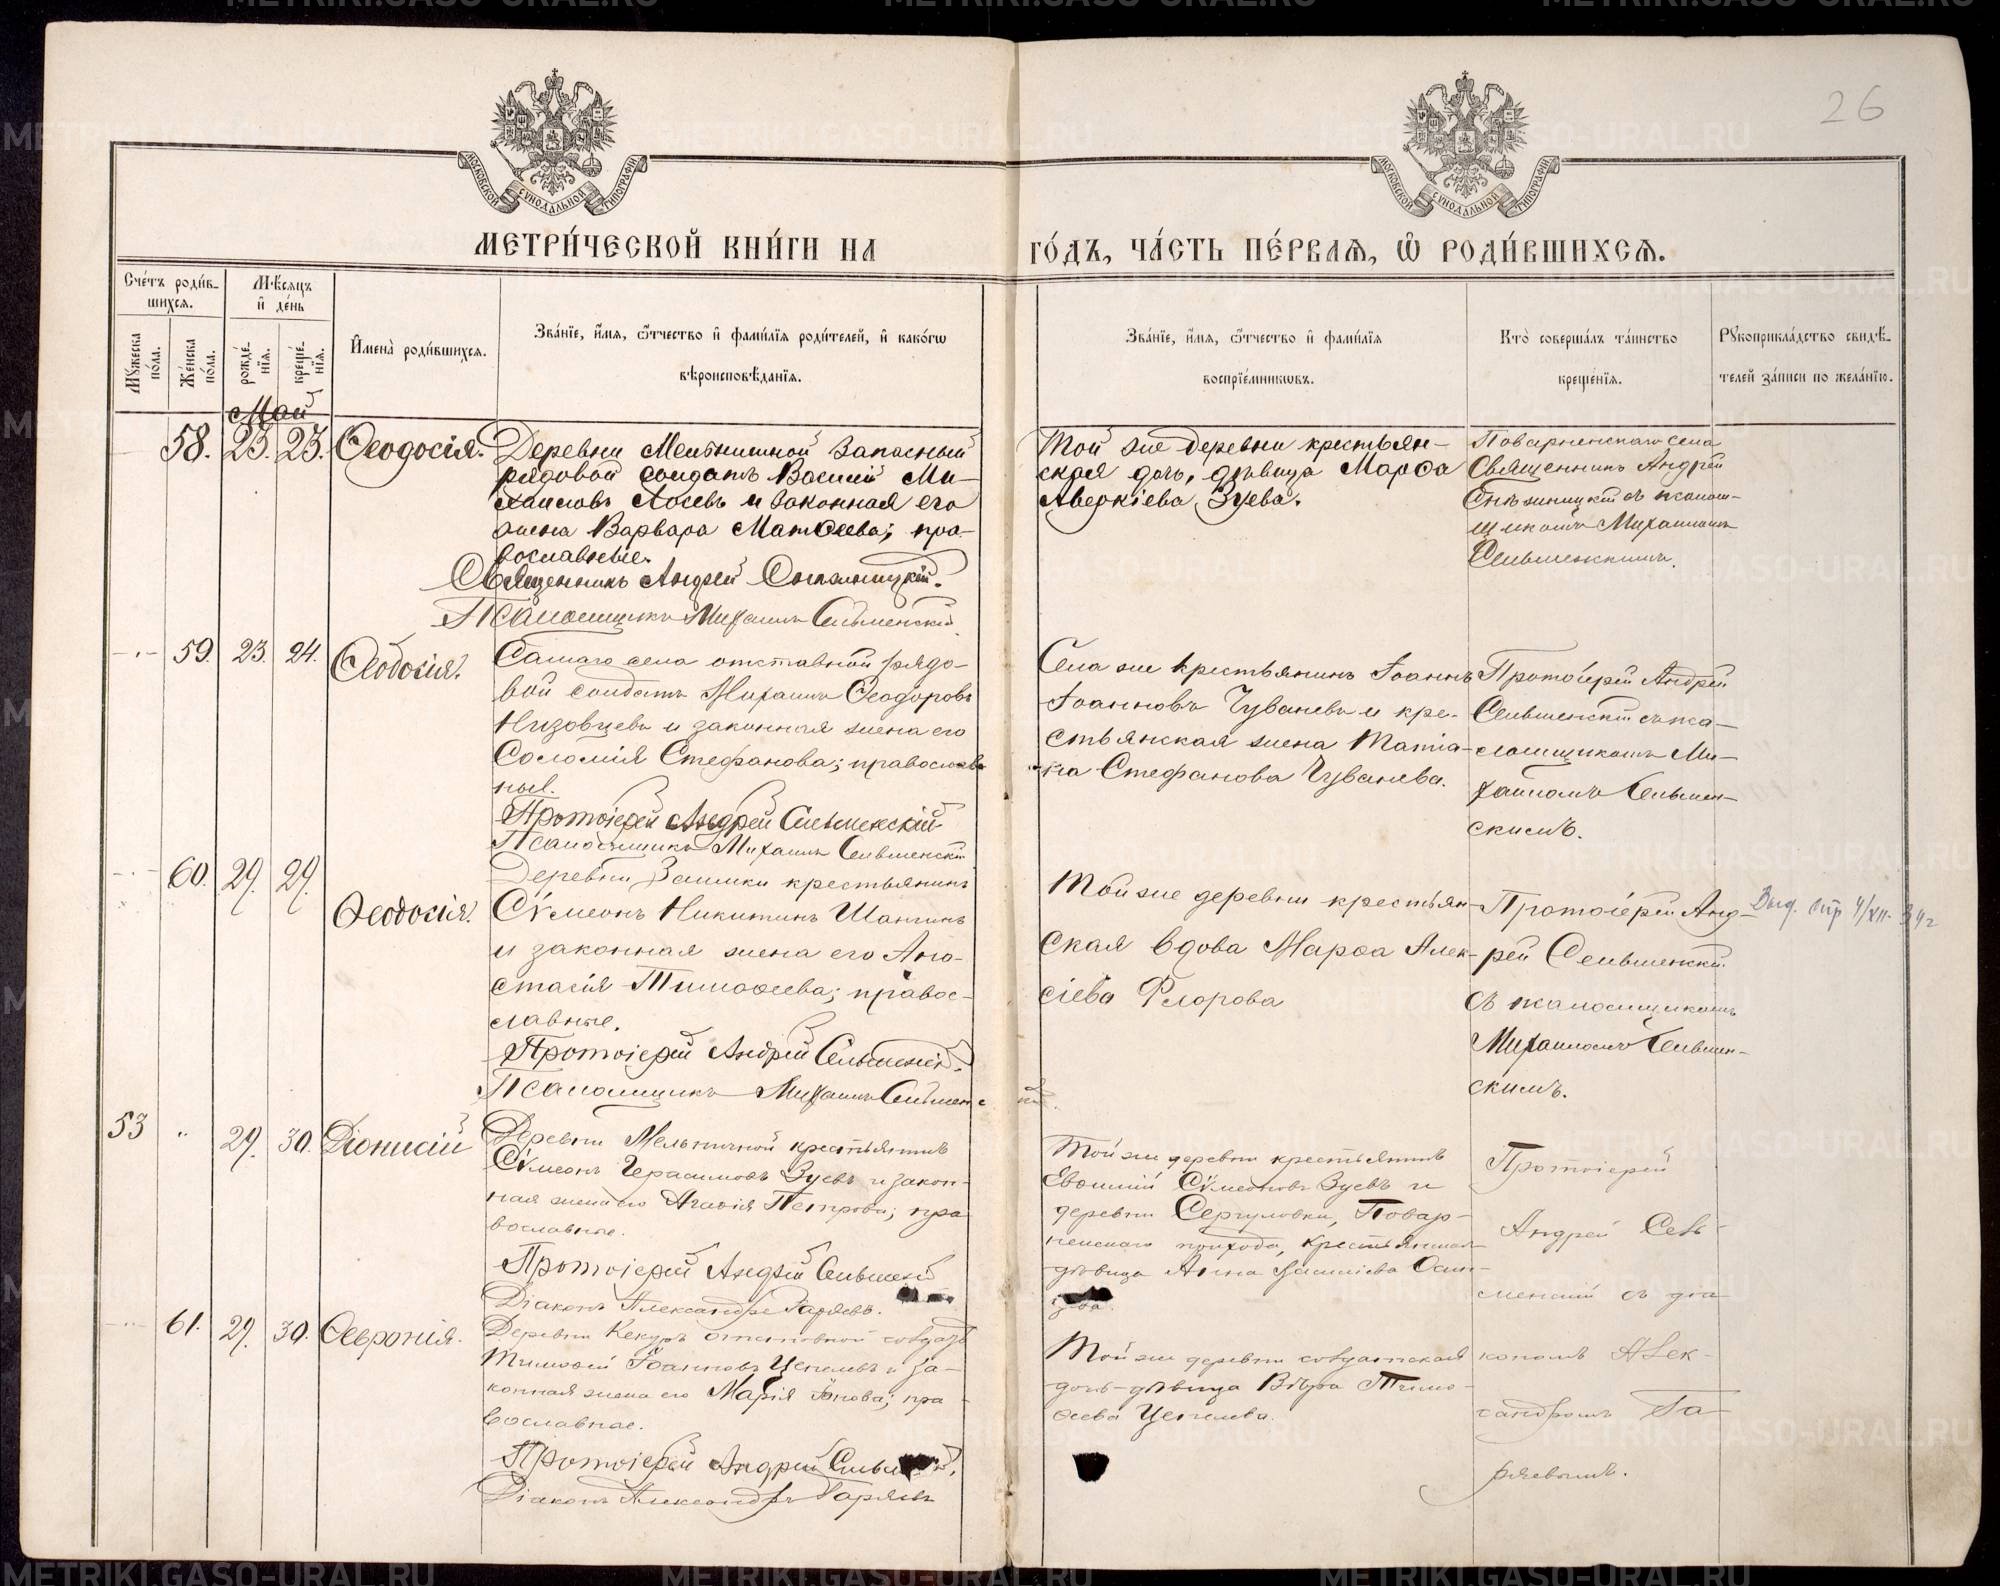 26
МОСКОВСКОЙ СѴНОДАЛЬНОЙ ТИПОГРАФІИ
МОСКОВСКОЙ СѴНОДАЛЬНОЙ ТИПОГРАФІИ
МЕТРИ́ЧЕСКОЙ КНИ́ГИ НА
ГО́ДЪ, ЧА́СТЬ ПЕ́РВАѦ, Ѡ҆ РОДИ́ВШИХСѦ.
Сче́тъ роди́в-
шихсѧ.
Мꙋ́жеска по́ла.
Же́нска по́ла.
Мѣ́сѧцъ
и҆ де́нь
рожде́-
нїѧ.
креще́-
нїѧ.
И҆мена̀ роди́вшихсѧ.
Зва́нїе, и҆́мѧ, ѻ҆́тчество и҆ фами́лїѧ роди́телей, и҆ како́гѡ
вѣроисповѣ́данїѧ.
Зва́нїе, и҆́мѧ, ѻ҆́тчество и҆ фами́лїѧ
воспрїе́мникѡвъ.
Кто̀ соверша́лъ та́инство
креще́нїѧ.
Рꙋкоприкла́дство свидѣ́-
телей за́писи по жела́нїю.
Май
58. 23. 23. Ѳеодосія.
Деревни Мельничной запасный
рядовой солдатъ Василій Ми-
хаиловъ Лосевъ и законная его
жена Варвара Матѳеева; пра-
вославные.
Священникъ Андрей Снѣжницкій.
Псаломщикъ Михаилъ Сельменскій.
Той же деревни крестьян-
ская дочь, дѣвица Марѳа
Аверкіева Зуева.
Поварненскаго села
Священникъ Андрей
Снѣжницкій съ псалом-
щикомъ Михаиломъ
Сельменскимъ.
59. 23. 24. Ѳеодосія.
Самаго села отставной рядо-
вой солдатъ Михаилъ Ѳеодоровъ
Низовцевъ и законная жена его
Соломія Стефанова; православ-
ные.
Протоіерей Андрей Сельменскій
Псаломщикъ Михаилъ Сельменскій
Села же крестьянинъ Іоаннъ
Іоанновъ Чувашевъ и кре-
стьянская жена Татіа-
на Стефанова Чувашева.
Протоіерей Андрей
Сельменскій съ пса-
ломщикомъ Ми-
хаиломъ Сельмен-
скимъ.
60. 29. 29. Ѳеодосія.
Деревни Заимки крестьянинъ
Сѵмеонъ Никитинъ Шангинъ
и законная жена его Ана-
стасія Тимоѳеева; правос-
лавные.
Протоіерей Андрей Сельменскій.
Псаломщикъ Михаилъ Сельменскій.
Той же деревни крестьян-
ская вдова Марѳа Алек-
сіева Флорова
Протоіерей Анд-
рей Сельменскій
съ псаломщикомъ
Михаиломъ Сельмен-
скимъ.
Выд. спр 4/XII-34г
53 „ 29. 30. Діонисій
Деревни Мельничной крестьянинъ
Сѵмеонъ Герасимовъ Зуевъ и закон-
ная жена его Агаѳія Петрова; пра
вославные.
Протоіерей Андрей Сельменскій
Діаконъ Александръ Гаряевъ.
Той же деревни крестьянинъ
Евѳимій Сѵмеоновъ Зуевъ и
деревни Сергуловки, Повар-
ненскаго прихода, крестьянская
дѣвица Анна Василіева Осин-
цева.
Протоіерей
Андрей Сель-
менскій съ діа
кономъ Алек-
сандромъ Га-
ряевымъ.
61. 29. 30. Ѳевронія.
Деревни Кекуръ отставной солдатъ
Тимоѳей Іоанновъ Цепелевъ и за-
конная жена его Марія Іонова; пра-
вославные.
Протоіерей Андрей Сельменскій.
Діаконъ Александръ Гаряевъ
Той же деревни солдатская
дочь-дѣвица Вѣра Тимо-
ѳеева Цепелева.
METRIKI.GASO-URAL.RU